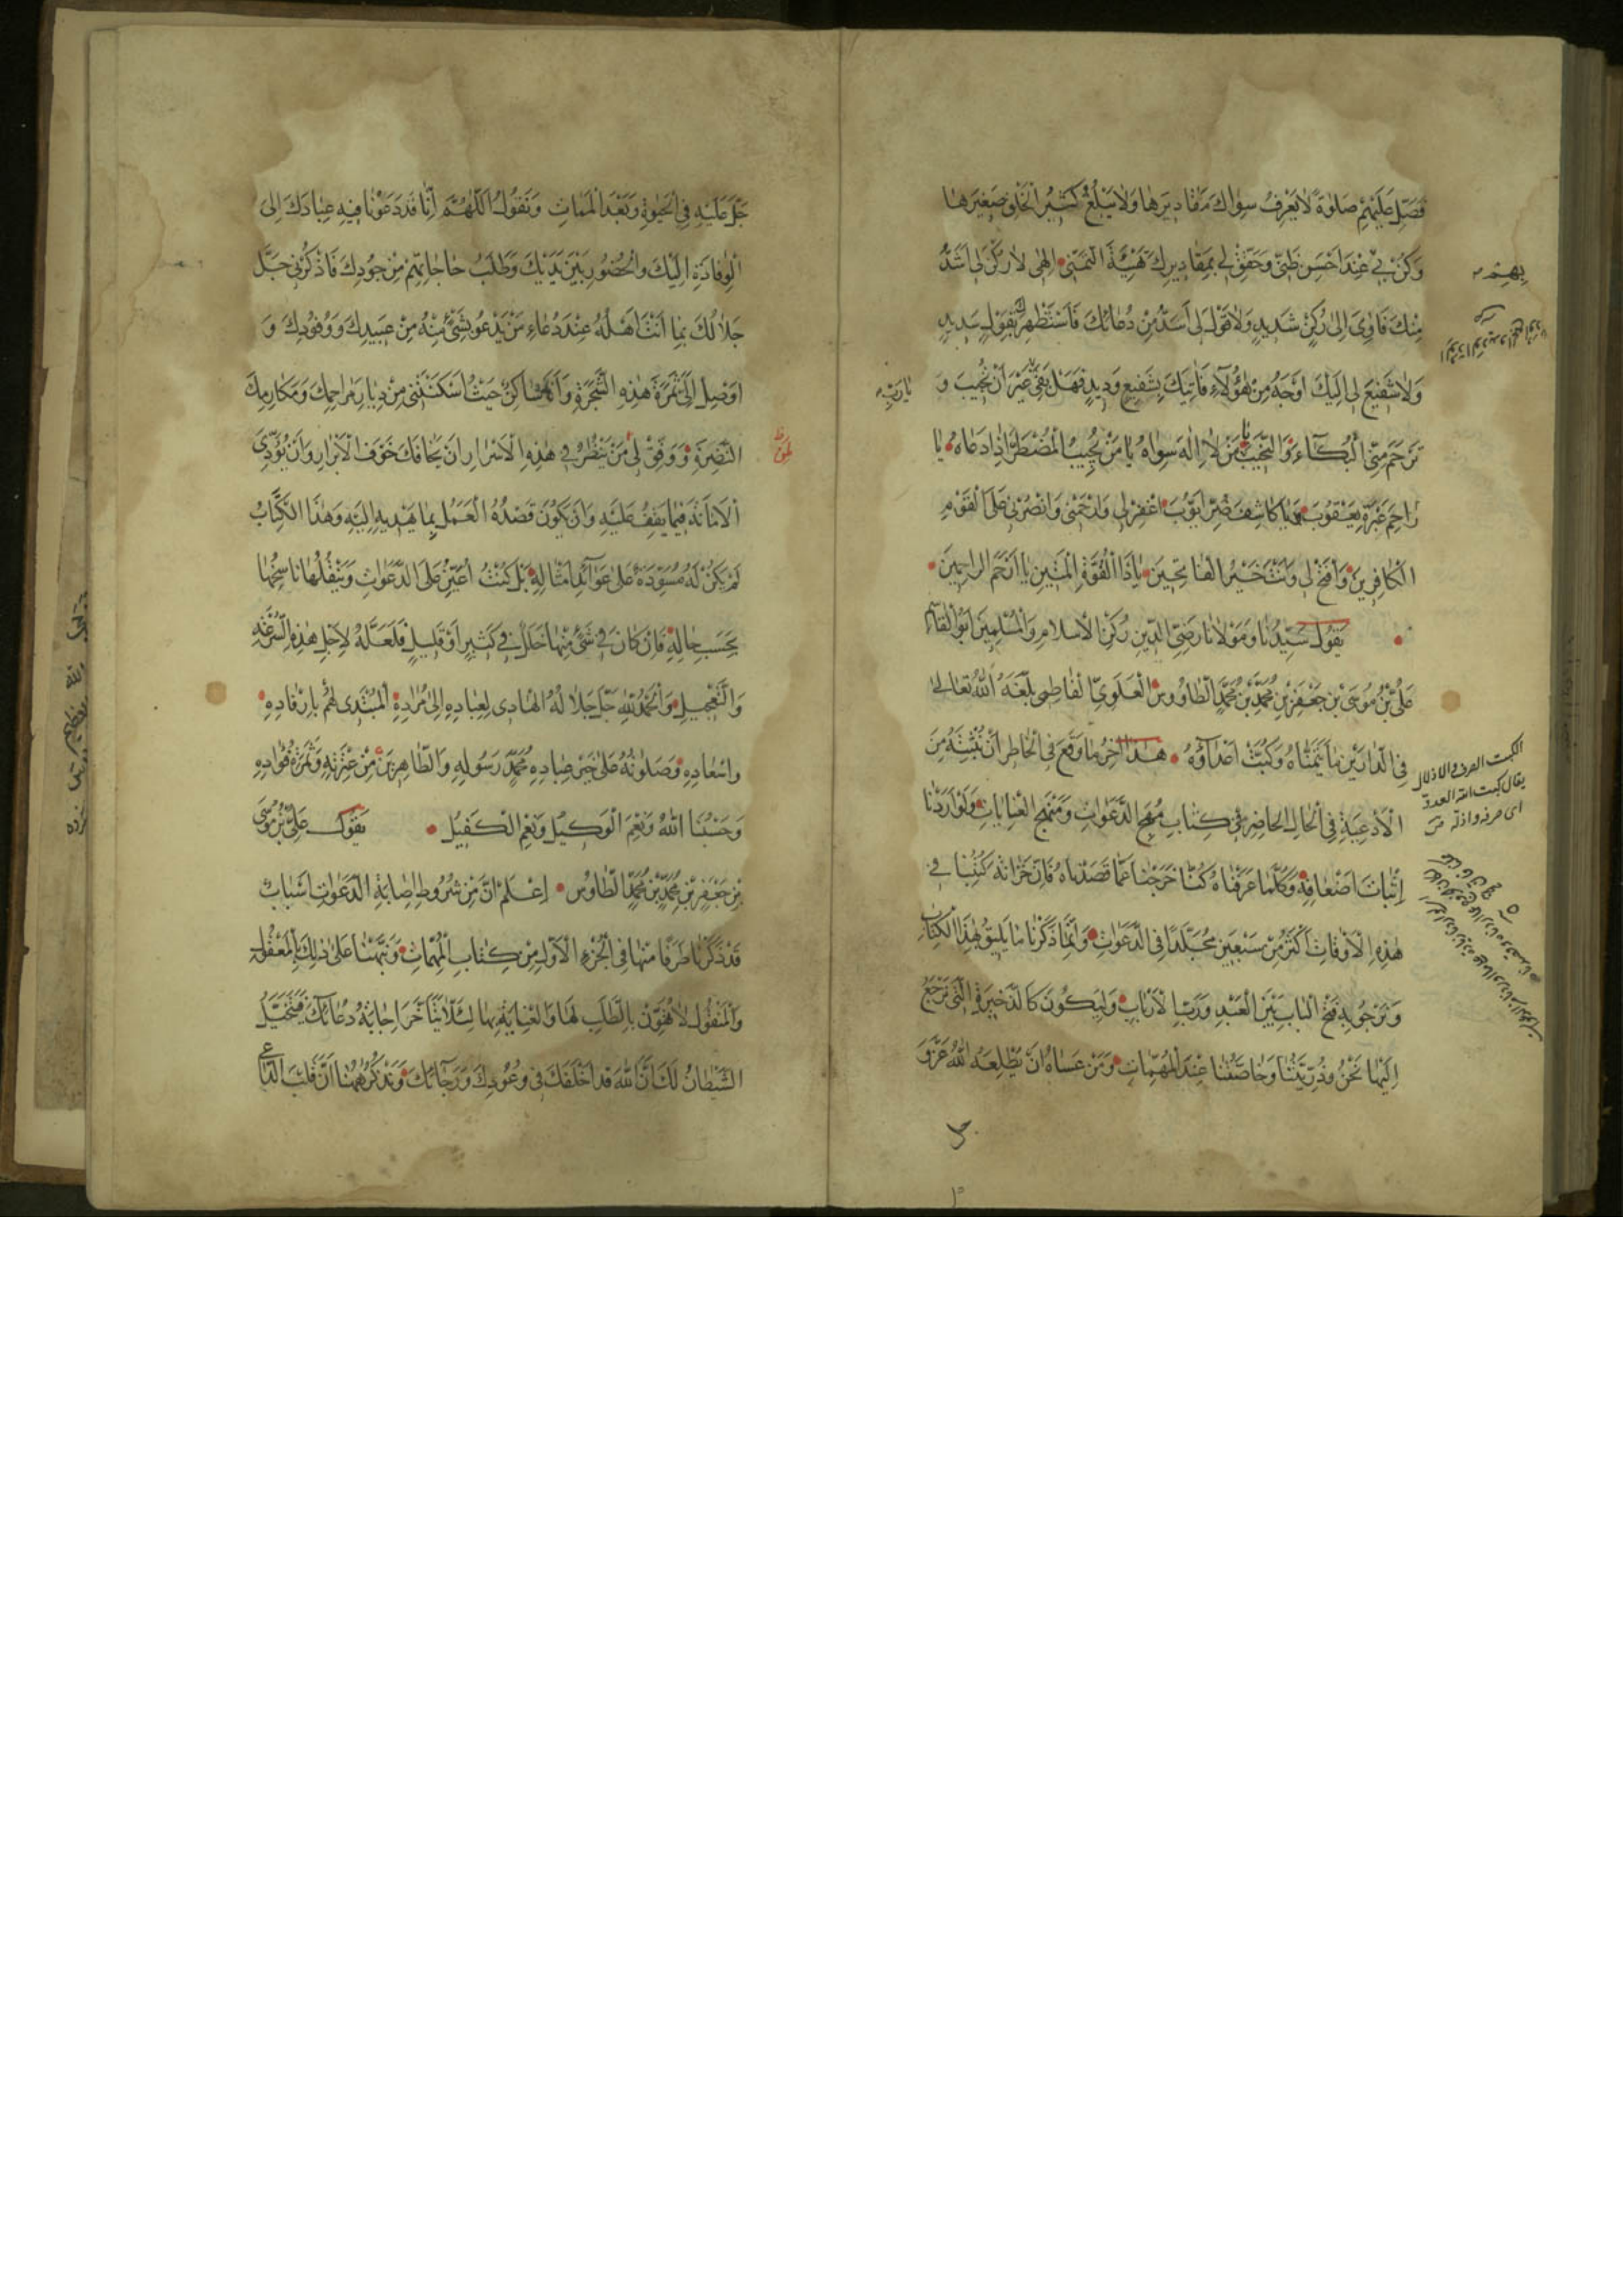 فَصَلِّ عَلَيْهِمْ صَلوٰةً لا يَعْرِفُ سِواكَ مَقاديرَها وَلا يَبْلُغُ كَثيرُ الْخَلْقِ صَغيرَها
وَكُنْ بي عِنْدَ اَحْسَنِ ظَنّي وَحَقِّقْ لي بِمَقاديرِكَ تَهْيِئَةَ التَّمَنّي اِلٰهي لا رُكْنَ لي اَشَدُّ
مِنْكَ فَآوِيَ اِلى رُكْنٍ شَديدٍ وَلا قَوْلَ لي اَسَدُّ مِنْ دُعائِكَ فَاَسْتَظْهِرُكَ بِقَوْلٍ سَديدٍ
وَلا شَفيعَ لي اِلَيْكَ اَوْجَهُ مِنْ هٰؤُلآءِ فَآتيكَ بِشَفيعٍ وَديدٍ فَهَلْ بَقِيَ غَيْرُ اَنْ تُجيبَ وَ
تَرْحَمَ مِنِّي الْبُكآءَ وَالنَّحيبَ يا مَنْ لا اِلٰهَ سِواهُ يا مَنْ يُجيبُ الْمُضْطَرَّ اِذا دَعاهُ يا
راحِمَ عَبْرَةِ يَعْقُوبَ يا كاشِفَ ضُرِّ اَيُّوبَ اغْفِرْ لي وَارْحَمْني وَانْصُرْني عَلَى الْقَوْمِ
الْكافِرينَ وَافْتَحْ لي وَاَنْتَ خَيْرُ الْفاتِحينَ يا ذَا الْقُوَّةِ الْمَتينِ يا اَرْحَمَ الرّاحِمينَ
يَقُولُ سَيِّدُنا وَمَوْلانا رَضِيُّ الدّينِ رُكْنُ الْاِسْلامِ وَالْمُسْلِمينَ اَبُو الْقاسِمِ
عَلِيُّ بْنُ مُوسَى بْنِ جَعْفَرِ بْنِ مُحَمَّدِ بْنِ مُحَمَّدٍ الطّاوُوسِ الْعَلَوِيُّ الْفاطِمِي بَلَّغَهُ اللهُ تَعالى
فِي الدّارَيْنِ ما يَتَمَنّاهُ وَكَبَتَ اَعْدآءَهُ هٰذا آخِرُ ما وَقَعَ فِي الْخاطِرِ اَنْ نُثْبِتَهُ مِنَ
الْاَدْعِيَةِ فِي الْحالِ الْحاضِرِ في كِتابِ مُهَجِ الدَّعَواتِ وَمَنْهَجِ الْعِناياتِ وَلَوْ اَرَدْنا
اِثْباتَ اَضْعافِهِ وَكُلَّما عَرَفْناهُ كُنّا خَرَجْنا عَمّا قَصَدْناهُ فَاِنَّ خَزانَةَ كُتُبِنا في
هٰذِهِ الْاَوْقاتِ اَكْثَرُ مِنْ سَبْعينَ مُجَلَّدًا فِي الدَّعَواتِ وَاِنَّما ذَكَرْنا ما يَليقُ بِهٰذَا الْكِتابِ
وَنَرْجُو بِهِ فَتْحَ الْبابِ بَيْنَ الْعَبْدِ وَرَبِّ الْاَرْبابِ وَلِيَكُونَ كَالذَّخيرَةِ الَّتي نَرْجِعُ
اِلَيْها نَحْنُ وَذُرِّيَّتُنا وَخاصَّتُنا عِنْدَ الْمُهِمّاتِ وَمَنْ عَساهُ اَنْ يُطْلِعَهُ اللهُ عَزَّ وَ
بهم
يا رب
الكبت الصرف والاذلال
يقال كبت الله العدوّ
اى صرفه واذله
جَلَّ عَلَيْهِ فِي الْحَيٰوةِ وَبَعْدَ الْمَماتِ وَنَقُولُ اَللّٰهُمَّ اِنّا قَدْ دَعَوْنا فيهِ عِبادَكَ اِلَى
الْوِفادَةِ اِلَيْكَ وَالْحُضُورِ بَيْنَ يَدَيْكَ وَطَلَبِ حاجاتِهِمْ مِنْ جُودِكَ فَاذْكُرْني جَلَّ
جَلالُكَ بِما اَنْتَ اَهْلُهُ عِنْدَ دُعاءِ مَنْ يَدْعُو بِشَيْءٍ مِنْهُ مِنْ عَبيدِكَ وَوُفُودِكَ وَ
اَوْصِلْ اِلَيَّ ثَمَرَةَ هٰذِهِ الشَّجَرَةِ وَاَنَا ساكِنٌ حَيْثُ اَسْكَنْتَني مِنْ دِيارِ مَراحِمِكَ وَمَكارِمِكَ
النَّضِرَةِ وَوَفِّقْ لي مَنْ يَنْظُرُ في هٰذِهِ الْاَسْرارِ اَنْ يَخافَكَ خَوْفَ الْاَبْرارِ وَاَنْ يُؤَدِّيَ
الْاَمانَةَ فيما يَقِفُ عَلَيْهِ وَاَنْ يَكُونَ قَصْدُهُ الْعَمَلَ بِما يَهْديهِ اِلَيْهِ وَهٰذَا الْكِتابُ
لَمْ يَكُنْ لَهُ مُسْوَدَّةٌ عَلى عَوآئِدِ اَمْثالِهِ بَلْ كُنْتُ اُعَيِّنُ عَلَى الدَّعَواتِ وَيَنْقُلُها ناسِخُها
بِحَسَبِ حالِهِ فَاِنْ كانَ في شَيْءٍ مِنْها خَلَلٌ في كَثيرٍ اَوْ قَليلٍ فَلَعَلَّهُ لِاَجْلِ هٰذِهِ السُّرْعَةِ
وَالتَّعْجيلِ وَالْحَمْدُ لِلّٰهِ جَلَّ جَلالُهُ الْهادي لِعِبادِهِ اِلى مُرادِهِ الْمُبْتَدي لَهُمْ بِاِرْفادِهِ
وَاِسْعادِهِ وَصَلَواتُهُ عَلى خَيْرِ عِبادِهِ مُحَمَّدٍ رَسُولِهِ وَالطّاهِرينَ مِنْ عِتْرَتِهِ وَثَمَرَةِ فُؤادِهِ
وَحَسْبُنا اللهُ وَنِعْمَ الْوَكيلُ وَنِعْمَ الْكَفيلُ يَقُولُ عَلِيُّ بْنُ مُوسَى
بْنِ جَعْفَرِ بْنِ مُحَمَّدِ بْنِ مُحَمَّدٍ الطّاوُسِ اِعْلَمْ اَنَّ مِنْ شُرُوطِ اِصابَةِ الدَّعَواتِ اَسْبابٌ
قَدْ ذَكَرْنا طَرَفًا مِنْها فِي الْجُزْءِ الْاَوَّلِ مِنْ كِتابِ الْمُهِمّاتِ وَنَبَّهْنا عَلى ذٰلِكَ بِالْمَعْقُولِ
وَالْمَنْقُولِ لا تُهَوِّنْ بِالطَّلَبِ لَها وَالْعِنايَةِ بِها لِئَلّا يَتَاَخَّرَ اِجابَةُ دُعائِكَ فَيُخَيِّلُ
الشَّيْطانُ لَكَ اَنَّ اللهَ قَدْ اَخْلَفَكَ في وُعُودِكَ وَرَجآئِكَ وَنَذْكُرُ هٰهُنا اَنَّ قَلْبَ الدّاعي